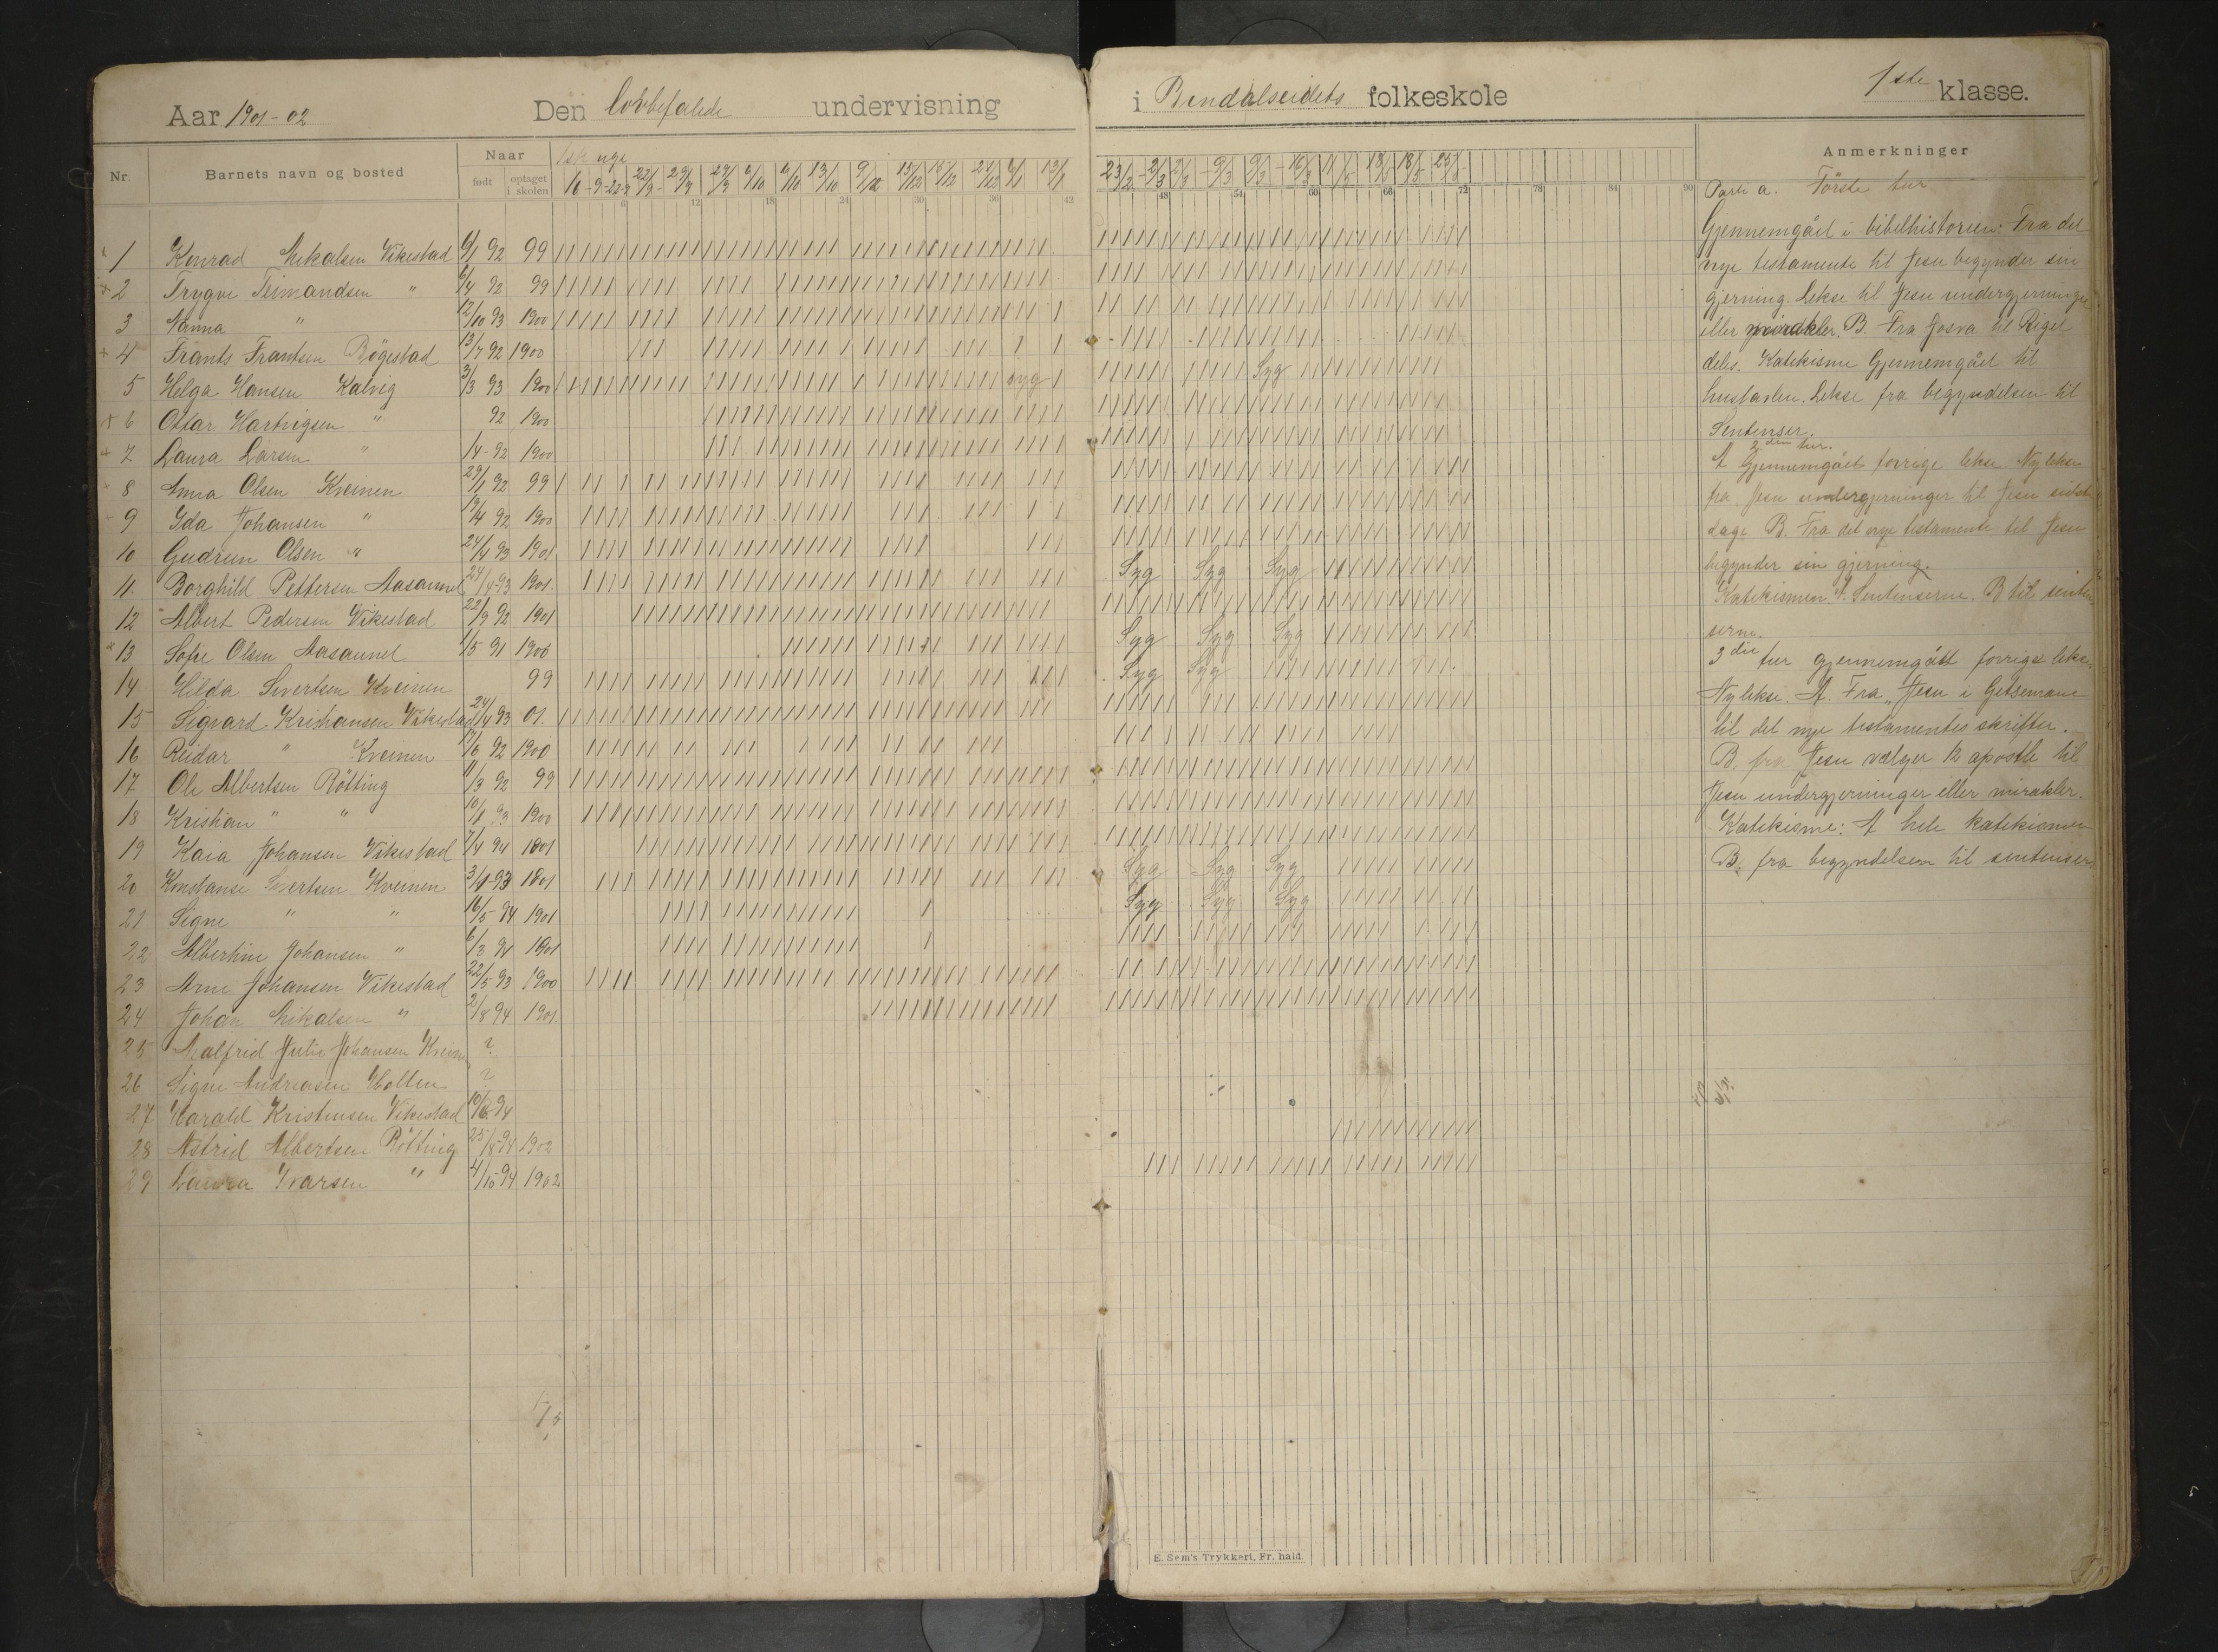 Aar 1901-02 Den lovbefalede undervisning
Nr. Barnets navn og bosted Naar født optaget i skolen
1ste uge
16-9-22-9 22/9-29/9 29/9 6/10 6/10 13/10 9/12 15/12 15/12 21/12 6/1 13/1
6 12 18 24 30 36 42
1 Konrad Mikalsen Vikestad 6/1 92 99
2 Trygve Teimandsen " 6/4 92 99
3 Nanna " 12/10 93 1900
4 Frants Frantsen Bögestad 13/7 92 1900
5 Helga Hansen Kalvig 3/3 93 1900 syg
6 Ottar Hartvigsen " 92 1900
7 Laura Larsen " 14-92 1900
8 Anna Olsen Kveinen 29/1 92 99
9 Ida Johansen " 19/4 92 1900
10 Gudrun Olsen " 24/4 93 1901
11. Borghild Pettersen Aasaunet 24/4-93 1901.
12 Albert Pedersen Vikestad 22/9 92 1901
13 Sofie Olsen Aasaunet 1/5 91 1900
14 Hilda Sivertsen Kveinen 99
15 Sigvard Kristiansen Vikestad 24/4 93 01.
16 Reidar " Kveinen 17/6 92 1900
17 Ole Albertsen Rötting 11/3 92 99
18 Kristian " " 10/8 93 1900
19 Kaia Johansen Vikestad 7/4 94 1801
20 Konstanse Sivertsen Kveinen 3/1-93 1801
21 Signe " " 16/5 94 1901
22 Albertine Johansen " 6/3 94 1901
23 Arne Johansen Vikestad 22/5 93 1900
24 Johan Mikalsen " 2/8 94 1901.
25 Malfrid Julie Johansen Kveinen ?
26 Signe Andreasen Holten ?
27 Harald Kristensen Vikestad 10/6-94
28 Astrid Albertsen Rötting 25/8-94 1902
29 Laura Ivarsen " 4/10-94 1902
i Bindalseidets folkeskole 1ste klasse.
23/2-2/3 2/3-9/3 9/3-16/3 11/5 18/5 18/5 25/5
48 54 60 66 72 78 84 90
Syg
Syg Syg Syg
Syg Syg Syg
Syg Syg
Syg Syg Syg
Syg Syg Syg
Anmerkninger
Parti a. Förste tur
Gjennemgået i bibelhistorien: Fra det
nye testamente til Jesu begynder sin
gjerning. Lekse til Jesu undergjerninger
eller mirakler. B. Fra Josva til Riget
deles. Katekisme Gjennemgået til
hustavlen. Lekse fra begyndelsen til
Sentenser.
2den tur.
A Gjennemgået forrige lekse. Ny lekse
fra Jesu undergjerninger til Jesu sidste
dage. B. Fra det nye testamente til Jesu
begynder sin gjerning.
Katekismen A. Sentenserne. B til senten
serne.
3die tur gjennemgått forrige lekse
Ny lekse. A. Fra „Jesu i Getsemane
til det nye testamentes skrifter.
B. fra Jesu vælger 12 apostle til
Jesu undergjerninger eller mirakler.
Katekisme: A hele katekismen
B. fra begyndelsen til sentenser
E. Sem's Trykkeri, Fr. hald